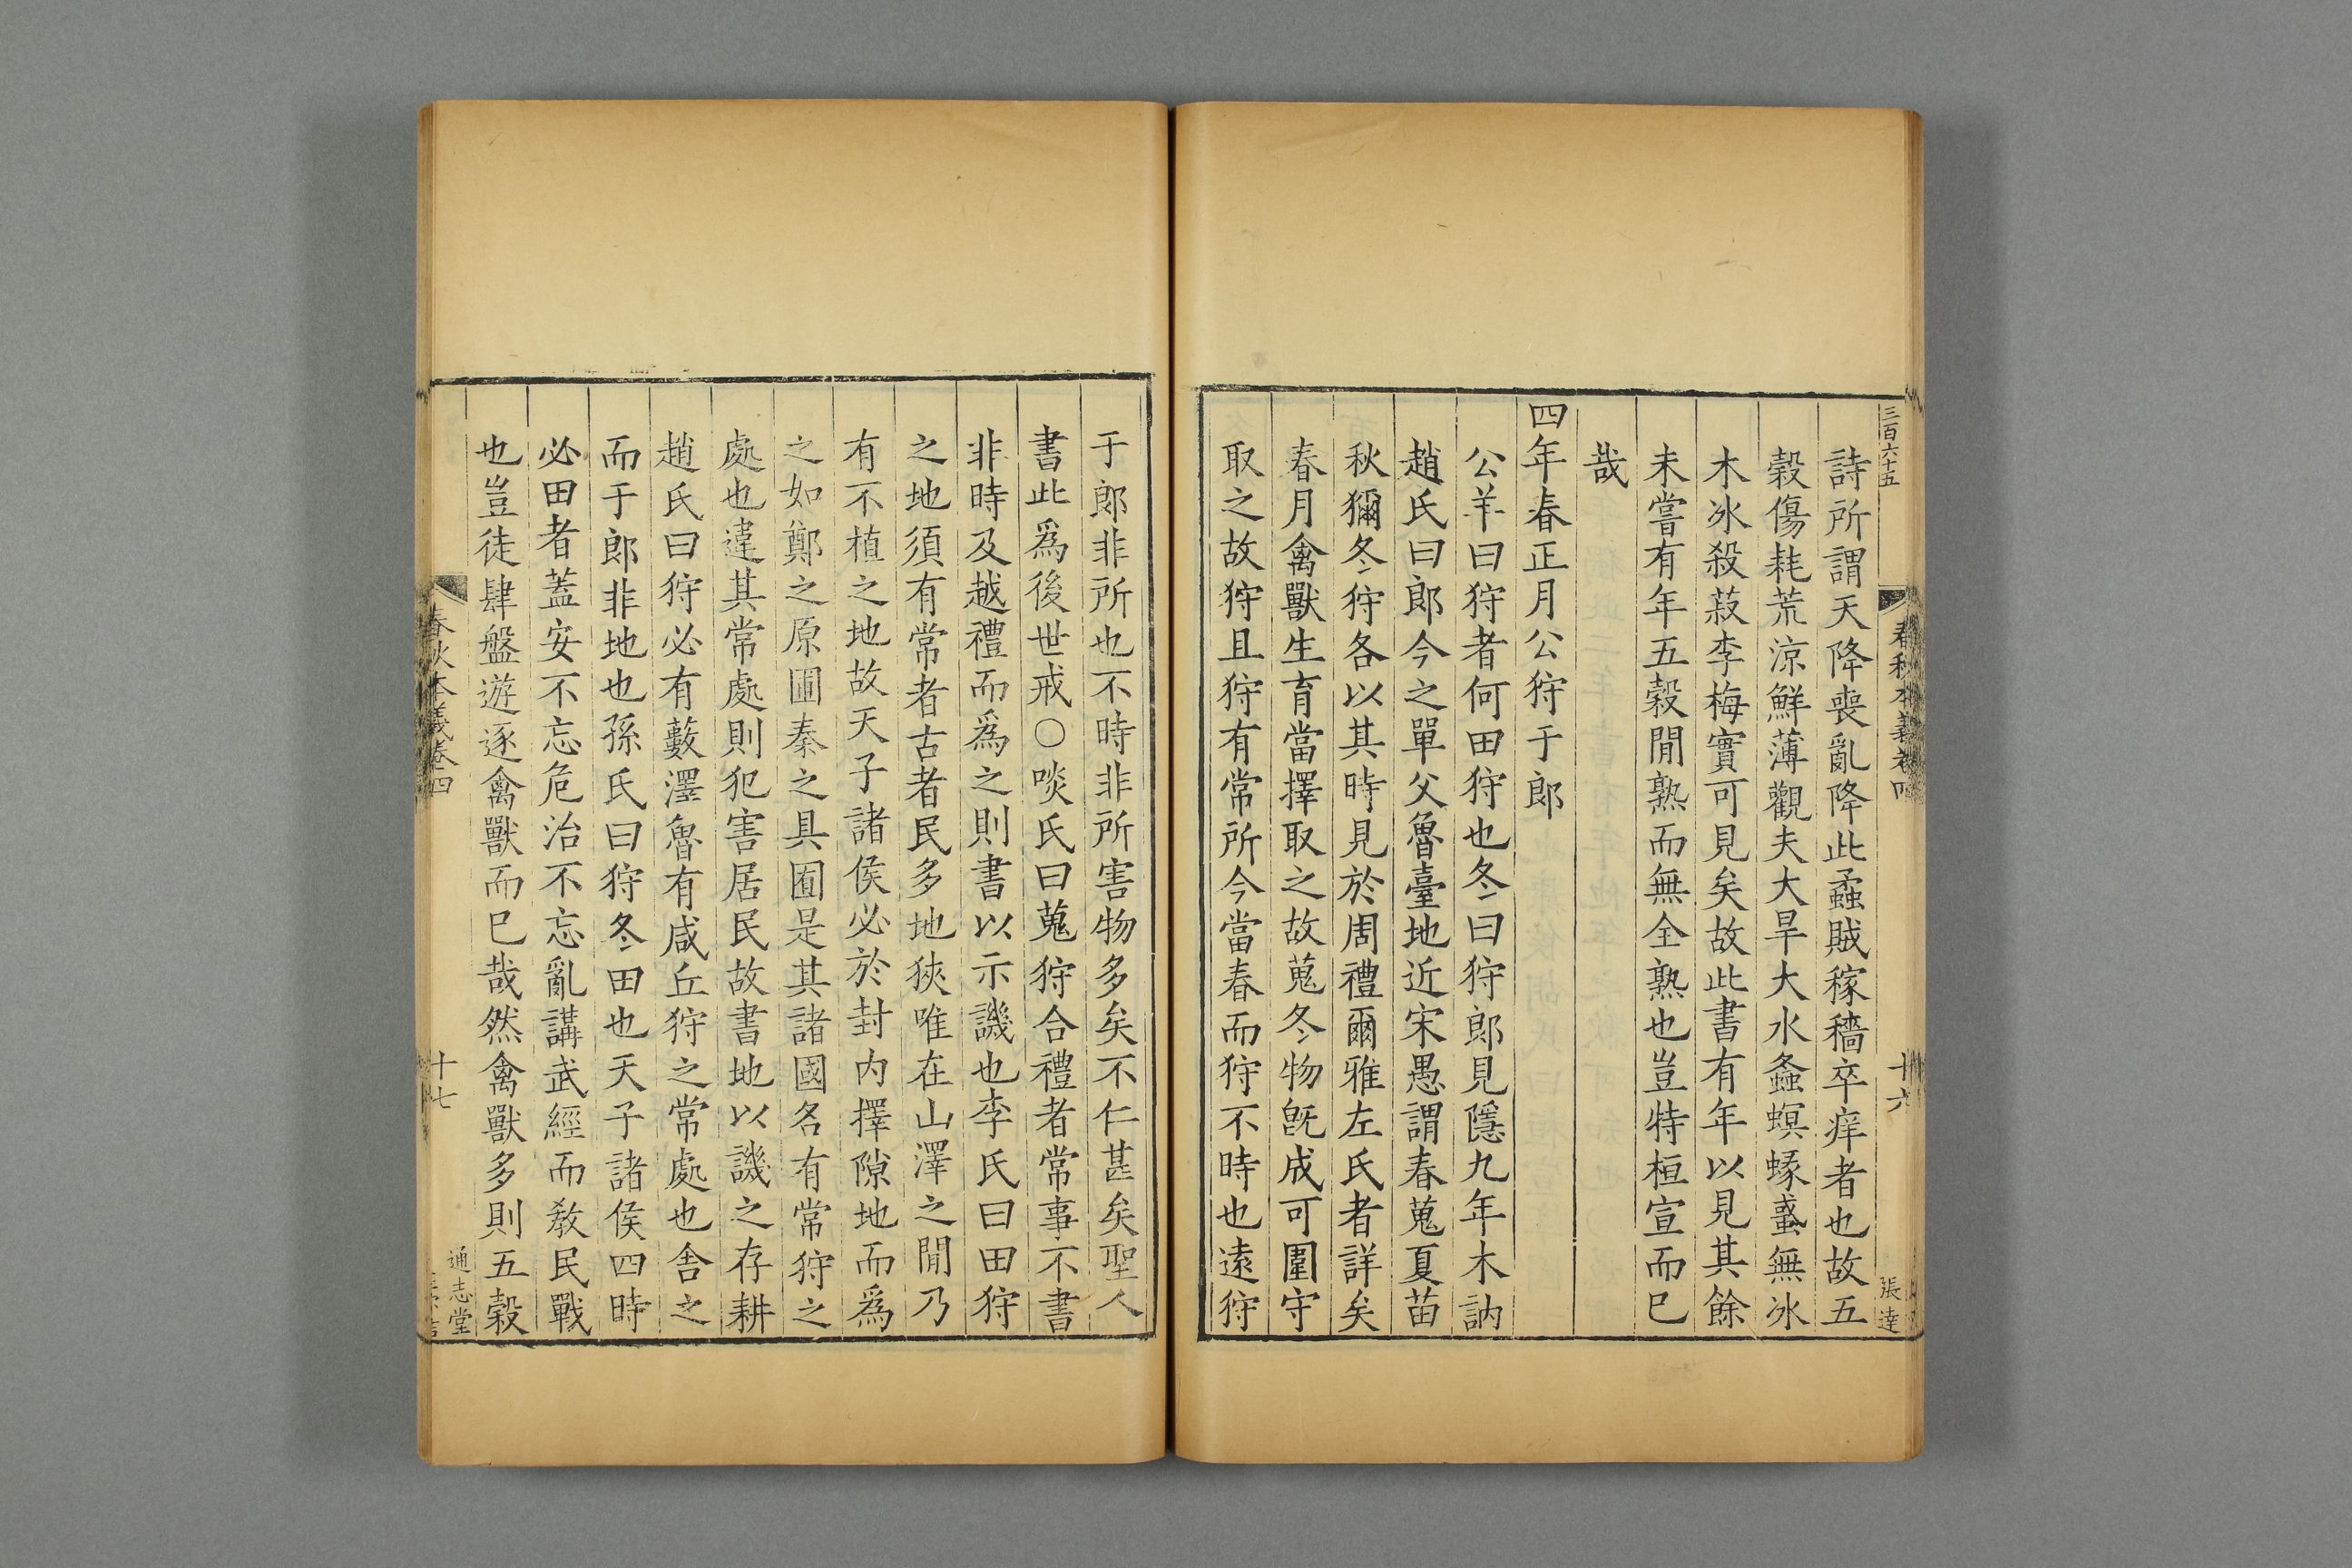 三百六十五
春秋本義卷四
十六
張達
詩所謂天降喪亂降此蟊賊稼穡卒痒者也故五
榖傷耗荒涼鮮薄觀夫大旱大水螽螟蝝蜚無冰
木冰殺菽李梅實可見矣故此書有年以見其餘
未嘗有年五榖閒熟而無全熟也豈特桓宣而巳
哉
四年春正月公狩于郎
公羊曰狩者何田狩也冬曰狩郎見隱九年木訥
趙氏曰郎今之單父魯臺地近宋愚謂春蒐夏苗
秋獮冬狩各以其時見於周禮爾雅左氏者詳矣
春月禽獸生育當擇取之故蒐冬物旣成可圍守
取之故狩且狩有常所今當春而狩不時也遠狩
于郎非所也不時非所害物多矣不仁甚矣聖人
書此爲後世戒○啖氏曰蒐狩合禮者常事不書
非時及越禮而爲之則書以示譏也李氏曰田狩
之地須有常者古者民多地狹唯在山澤之閒乃
有不植之地故天子諸侯必於封内擇隙地而爲
之如鄭之原圃秦之具囿是其諸國各有常狩之
處也違其常處則犯害居民故書地以譏之存耕
趙氏曰狩必有藪澤魯有咸丘狩之常處也舍之
而于郎非地也孫氏曰狩冬田也天子諸侯四時
必田者蓋安不忘危治不忘亂講武經而敎民戰
也豈徒肆盤遊逐禽獸而巳哉然禽獸多則五榖
春秋本義卷四
十七
通志堂